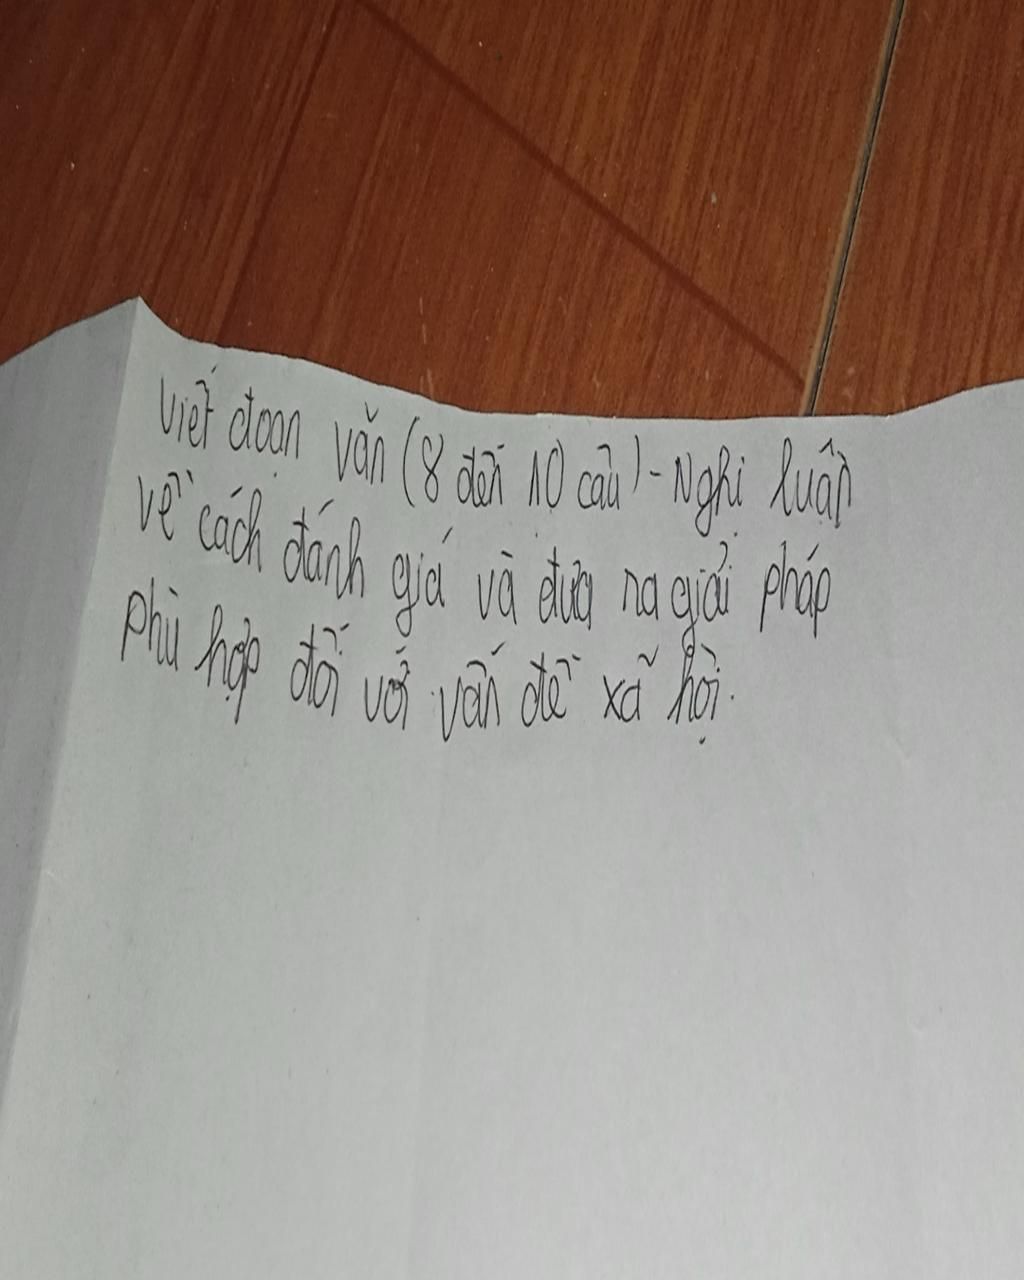 Viết đoạn văn (8 đến 10 câu) - Nghị luận
về cách đánh giá và đưa ra giải pháp
phù hợp đối với vấn đề xã hội.